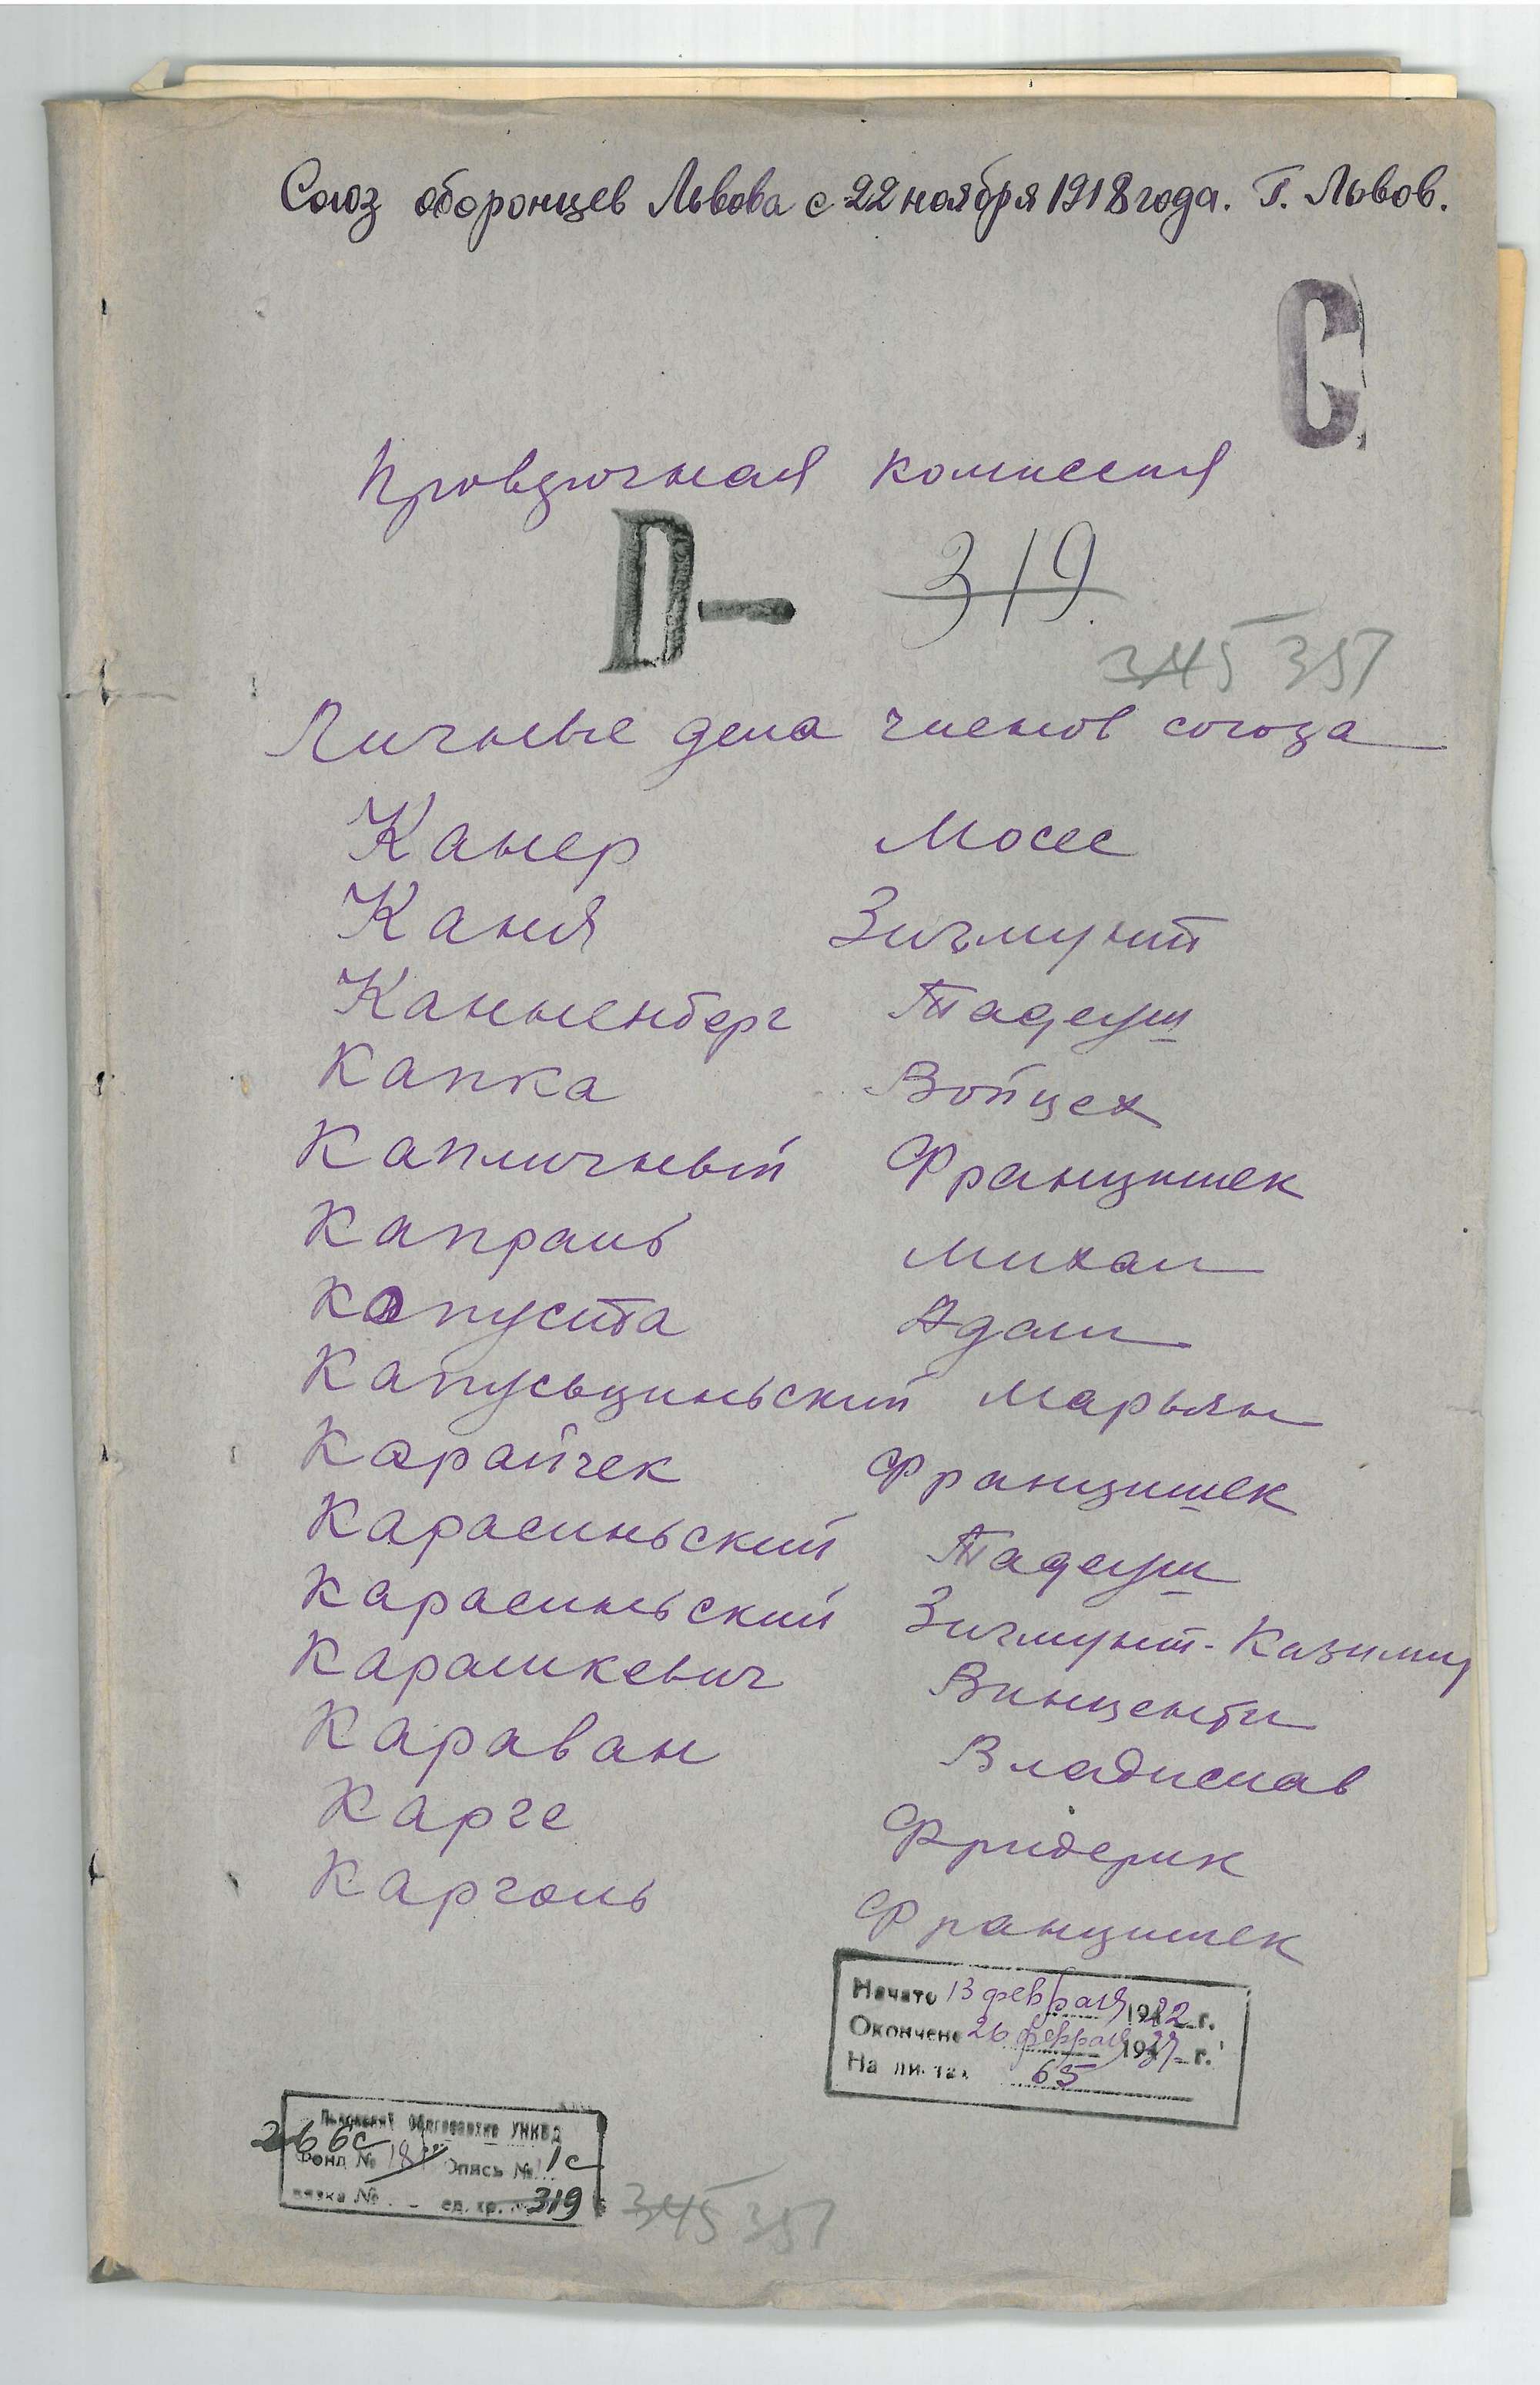 Союз оборонцев Львова с 22 ноября 1918 года. Г. Львов.
С
комиссия
D-
319
345 351
Личные дела членов союза
Канер Мосес
Каня Зигмунт
Канненберг Тадеуш
Капка Войцех
Капличный Францишек
Капраль Михал
Капуста Адам
Капусьциньский Марьян
Карайчек Францишек
Карасиньский Тадеуш
Карасиньский Зигмунт-Казимир
Карашкевич Винценти
Караван Владислав
Карге Фридерик
Карголь Францишек
Начато 13 февраля 1922 г.
Окончено 26 февраля 1937 г.
На листах 65
Львовский Облгосархив УНКВД
266с
Фонд № 181 Опись № 1с
вязка № ед. хр. № 319
345 351